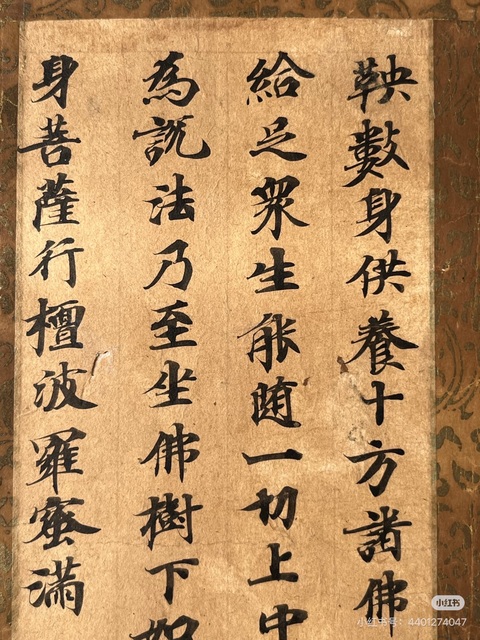 鞅數身供養十方諸佛
給足眾生能随一切上中
為說法乃至坐佛樹下如
身菩薩行檀波羅蜜滿
小红书
小红书号：4401274047